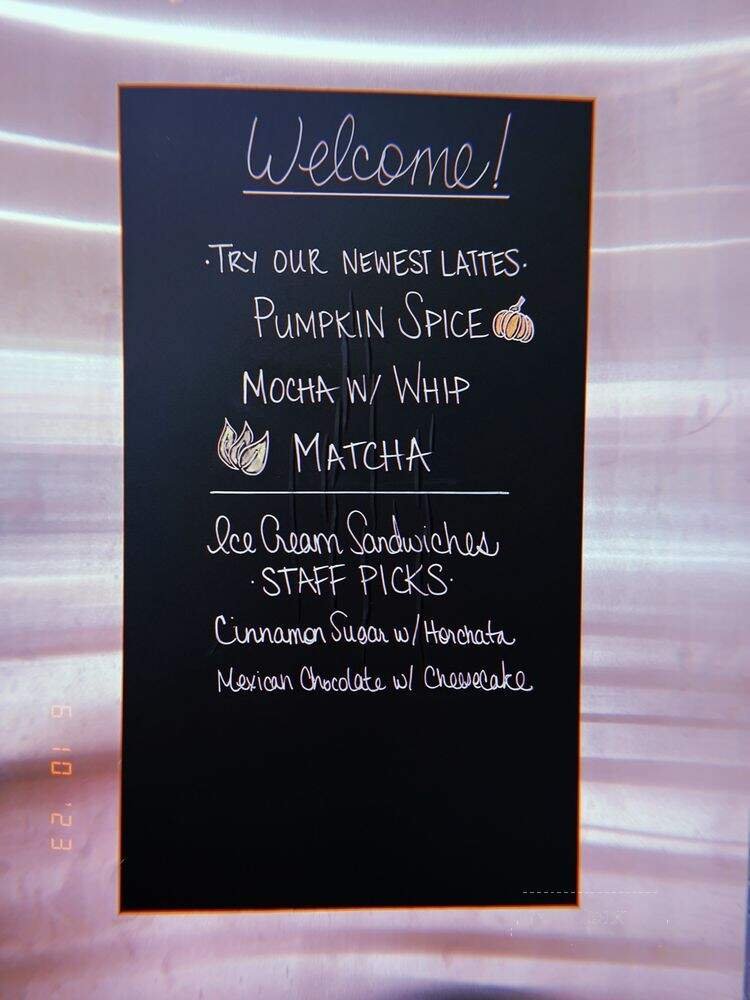 Welcome!
·TRY OUR NEWEST LATTES·
PUMPKIN SPICE
MOCHA W/ WHIP
MATCHA
Ice Cream Sandwiches
·STAFF PICKS·
Cinnamon Sugar w/ Horchata
Mexican Chocolate w/ Cheesecake
6 10 '23